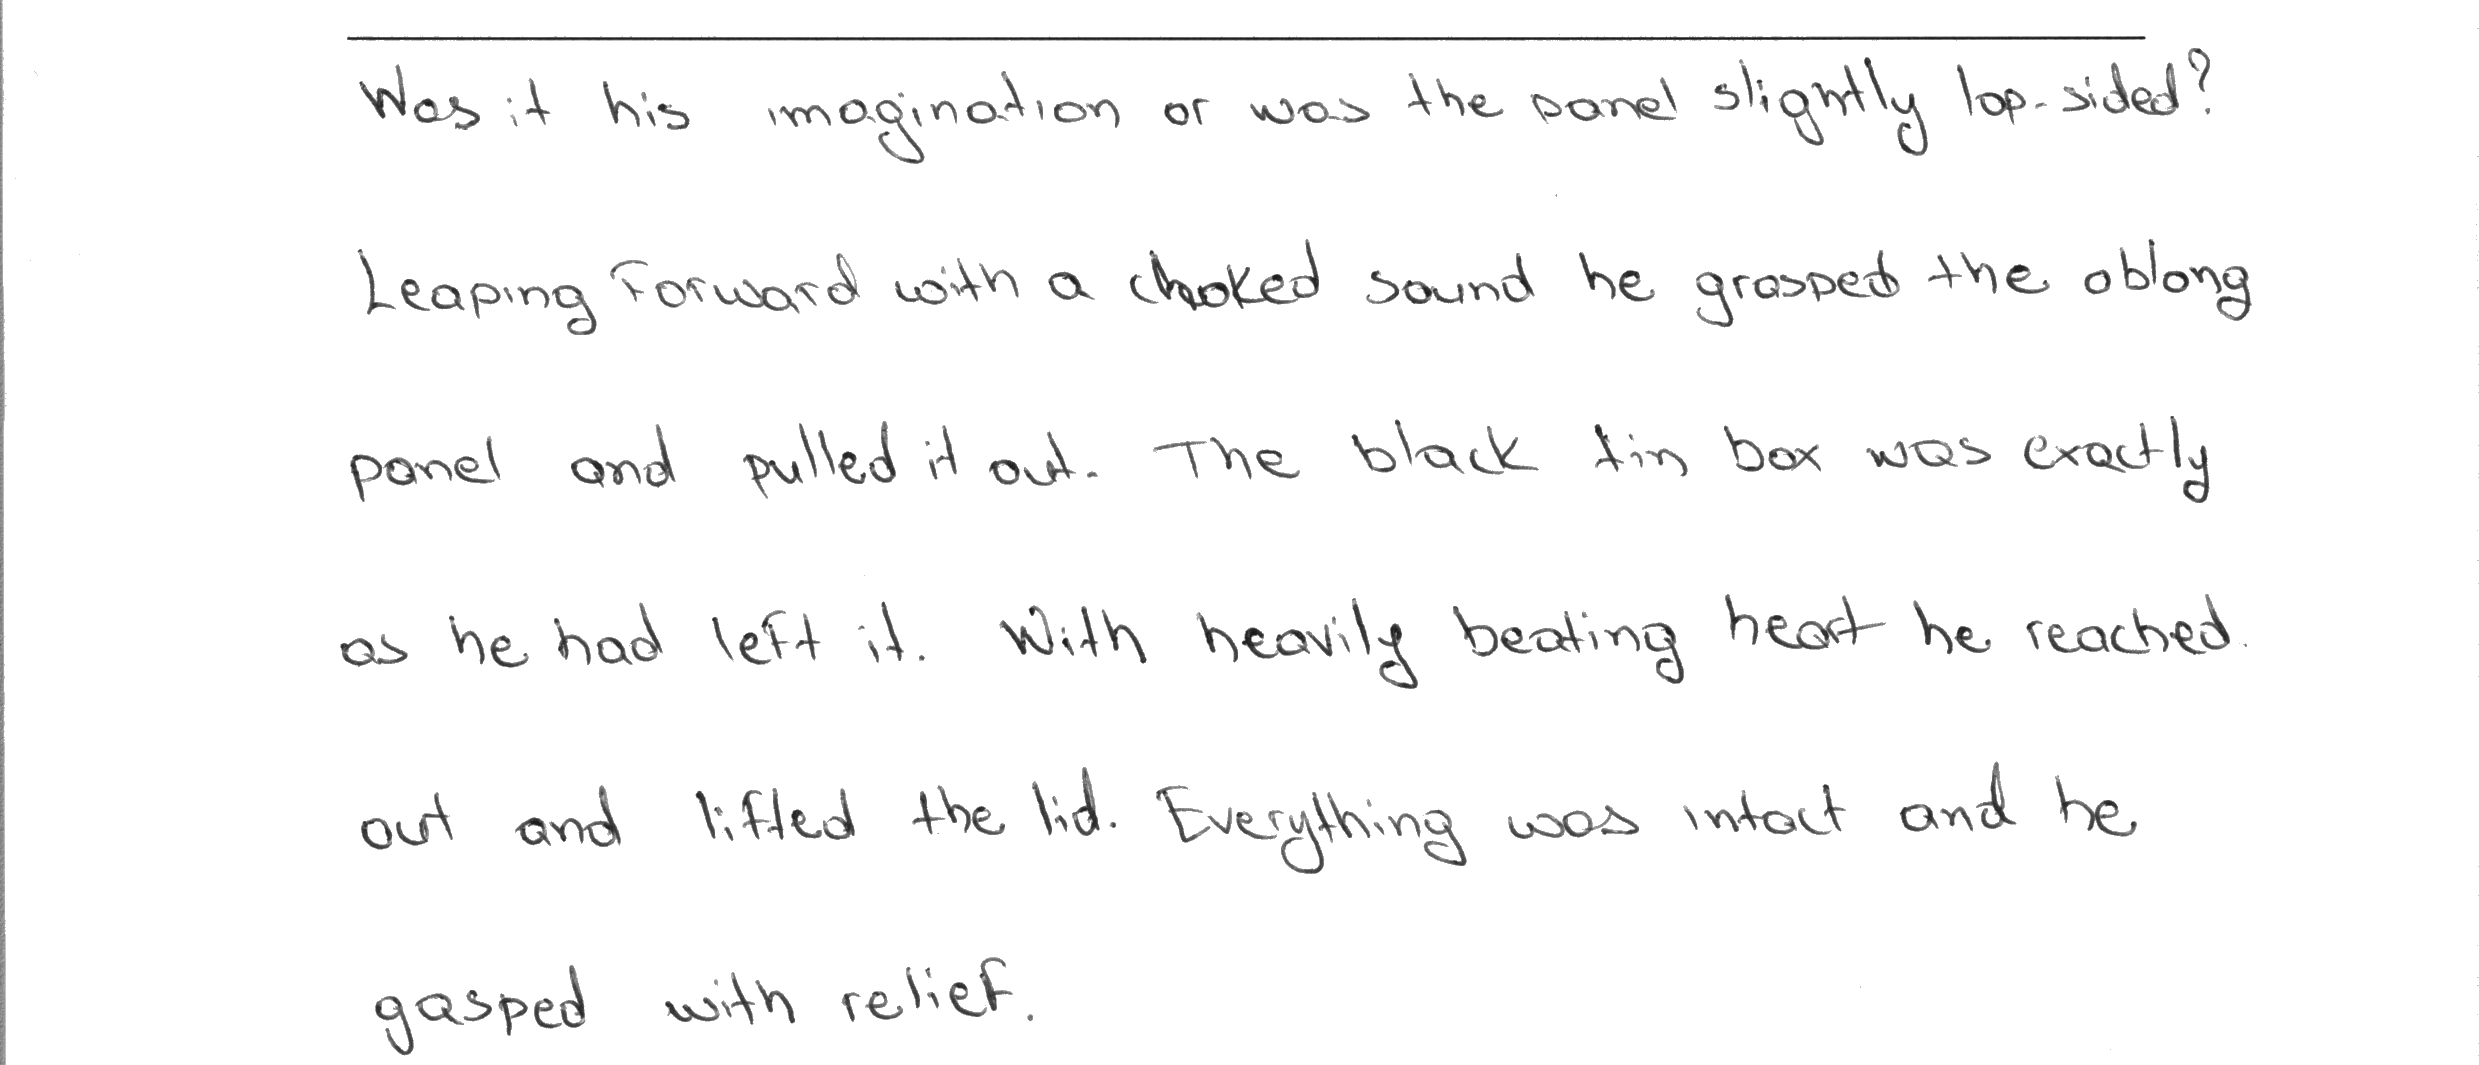 Was it his imagination or was the panel slightly lop-sided?
Leaping forward with a choked sound he grasped the oblong
panel and pulled it out. The black tin box was exactly
as he had left it. With heavily beating heart he reached.
out and lifted the lid. Everything was intact and he
gasped with relief.